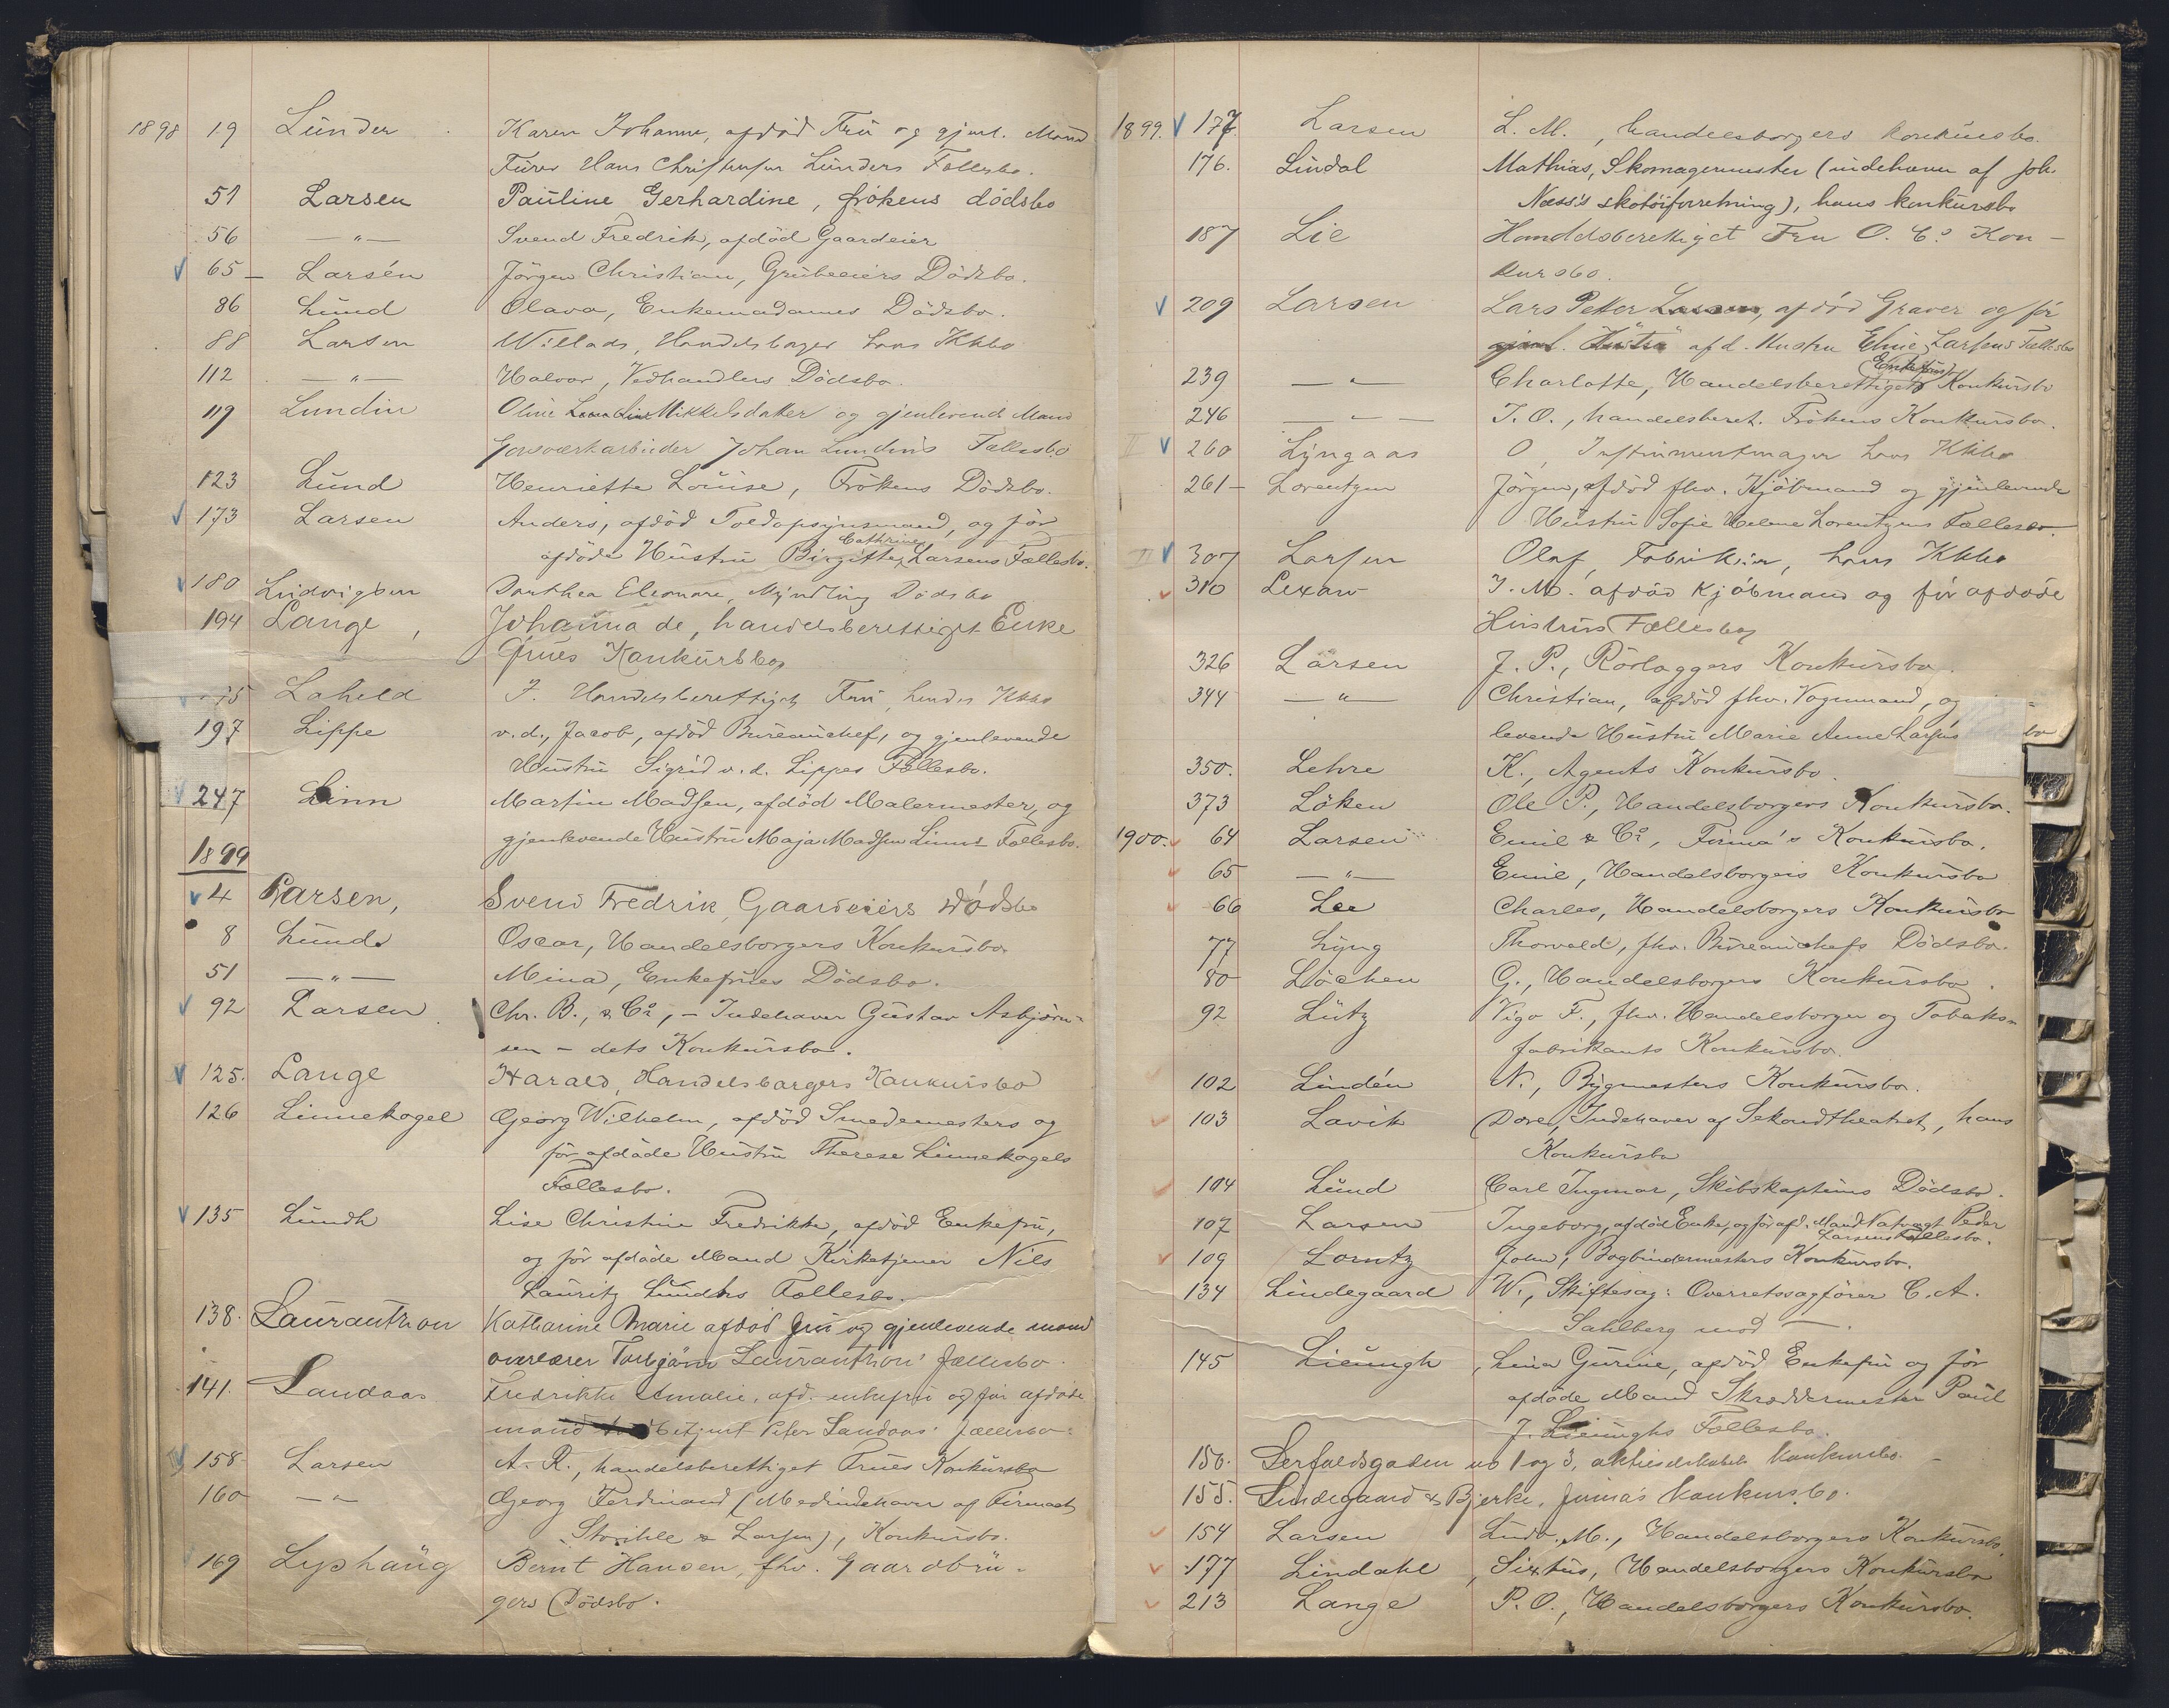 1898 19 Lunder Karen Johanne, afdöd Fru og gjenl. Mand
Furer Hans Christensen Lunders Fællesbo.
51 Larsen Pauline Gerhardine, frökens dödsbo
56 —"— Svend Fredrik, afdöd Gaardeier
65 Larsén Jörgen Christian, Grubeeiers Dödsbo.
86 Lund Olava, Enkemadames Dödsbo.
88 Larsen Willads, Handelsborger hans Kkbo
112 —"— Halvor, Vedhandlers Dödsbo.
119 Lundin Oline Mikkelsdatter og gjenlevende Mand
Johan Lundins Fællesbo
123 Lund Henriette Louise, Frökens Dödsbo.
173 Larsen Anders, afdöd Toldopsynsmand, og för
afdöde Hustru Birgitte Cathrine Larsens Fællesbo.
180 Ludvigsen Dorthea Eleonore, Myndling Dödsbo
194 Lange, Johanna de, handelsberettiget Enke
frues Konkursbo
Laheld J. Handelsberettiget Fru, hendes Kkbo
197 Lippe v.d., Jacob, afdöd Bureauchef, og gjenlevende
Hustru Sigrid v.d. Lippes Fællesbo.
247 Linn Martin Madsen, afdöd Malermester, og
gjenlevende Hustru Maja Madsen Linns Fællesbo.
1899
4 Larsen, Svend Fredrik, Gaardeiers Dödsbo
8 Lund Oscar, Handelsborgers Konkursbo
51 —"— Mina, Enkefrues Dödsbo.
92 Larsen Chr. B., & Co, – Indehaver Gustav Asbjörn-
sen – dets Konkursbo.
125. Lange Harald, Handelsborgers Konkursbo
126 Linnekogel Georg Wilhelm, afdöd Smedemesters og
för afdöde Hustru Therese Linnekogels
Fællesbo.
135 Lundh Lise Christine Fredrikke, afdöd Enkefru,
og för afdöde Mand Kirketjener Nils
Lauritz Lundhs Fællesbo.
138. Laurantzon Katharine Marie afdöd fru og gjenlevende mand
overlærer Torbjörn Laurantzon' fællesbo.
141. Landaas Fredrikke Amalie, afd. enkefru og för afdöde
mand Peter Landaas' fællesbo.
158 Larsen A. R., handelsberettiget Frues Konkursbo
160 —"— Georg Ferdinand (Medindehaver af Firmaet
Storihle & Larsen), Konkursbo.
169 Lyshaug Bernt Hansen, fhv. Gaardbru-
gers Dödsbo.
1899. 177. Larsen L. M., handelsborgers konkursbo.
176. Lindal Mathias, Skomagermester (indehaver af Joh.
Næss's skotöiforretning), hans konkursbo
187 Lie Handelsberettiget Fru O. Co Kon-
kursbo.
209 Larsen Lars Petter, afdöd Graver og för
afd. Hustru Eline Larsens Fællesbo
239 —"— Charlotte, Handelsberettiget (Enkefrus) Konkursbo
246 —"— J. O., handelsberet. Frökens Konkursbo.
II 260 Lyngaas O, Instrumentmager hans Kkbo
261 Lorentzen Jörgen, afdöd fhv. Kjöbmand og gjenlevende
Hustru Sofie Helene Lorentzens Fællesbo.
II 307 Larsen Olaf, Fabrikeier, hans Kkbo
310 Lexaw J. M. afdöd Kjöbmand og för afdöde
Hustrus Fællesbo
326 Larsen J. P., Rörlæggers Konkursbo.
344 —"— Christian, afdöd fhv. Vognmand, og
levende Hustru Marie Anne Larsens
350. Lehre K., Agents Konkursbo.
373 Löken Ole P., Handelsborgers Konkursbo.
1900. 64 Larsen Emil & Co, Firma's Konkursbo.
65 —"— Emil, Handelsborgers Konkursbo
66 Lee Charles, Handelsborgers Konkursbo
77 Lyng Thorvald, fhv. Bureauchefs Dödsbo.
80 Löchen G., Handelsborgers Konkursbo.
92 Lutz Vigo F., fhv. Handelsborger og Tobaks-
fabrikants Konkursbo.
102 Lindén N., Bygmesters Konkursbo.
103 Lavik Dore, Indehaver af Sekondtheatret, hans
Konkursbo
104 Lund Carl Ingmar, Skibskapteins Dödsbo.
107 Larsen Ingeborg, afdöd Enke, og för afd. Mand Natvægt Peder
Larsens Fællesbo.
109 Lorntz John, Bogbindermesters Konkursbo.
134 Lindegaard W., Skiftesag: Overretssagförer C. A.
Sahlberg mod —.
145 Lieungh, Lina Gurine, afdöd Enkefru og för
afdöde Mand Skræddermester Paul
J. Lieunghs Fællesbo.
150. Lerfaldsgaden no 1 og 3, aktieselskabet konkursbo.
155. Lindegaard & Bjerke, firma's konkursbo.
154 Larsen Ludv. M., Handelsborgers Konkursbo.
177 Lindahl, Sixtus, Handelsborgers Konkursbo
213 Lange P. O., Handelsborgers Konkursbo.